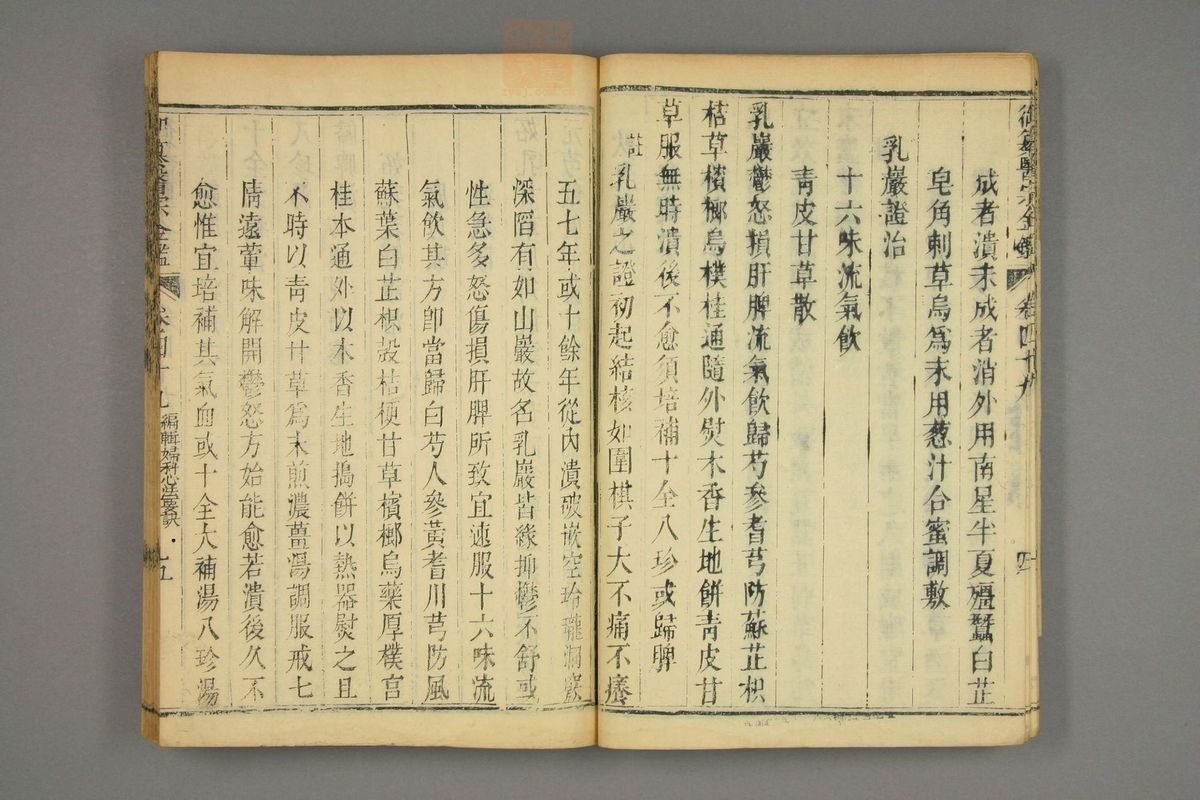 御纂醫宗金鑑
卷四十九
成者潰未成者消外用南星半夏殭蠶白芷
皂角刺草烏爲末用葱汁合蜜調敷
乳巖證治
十六味流氣飲
青皮甘草散
乳巖鬱怒損肝脾流氣飲歸芍參耆芎防蘇芷枳
桔草檳榔烏樸桂通隨外熨木香生地餅青皮甘
草服無時潰後不愈須培補十全八珍或歸脾
註乳巖之證初起結核如圍棋子大不痛不癢
五七年或十餘年從內潰破嵌空玲瓏洞竅
深陷有如山巖故名乳巖皆緣抑鬱不舒或
性急多怒傷損肝脾所致宜速服十六味流
氣飲其方卽當歸白芍人參黃耆川芎防風
蘇葉白芷枳殼桔梗甘草檳榔烏藥厚樸官
桂木通外以木香生地搗餅以熱器熨之且
不時以青皮甘草爲末煎濃薑湯調服戒七
情遠葷味解開鬱怒方始能愈若潰後久不
愈惟宜培補其氣血或十全大補湯八珍湯
御纂醫宗金鑑
卷四十九
編輯婦科心法要訣